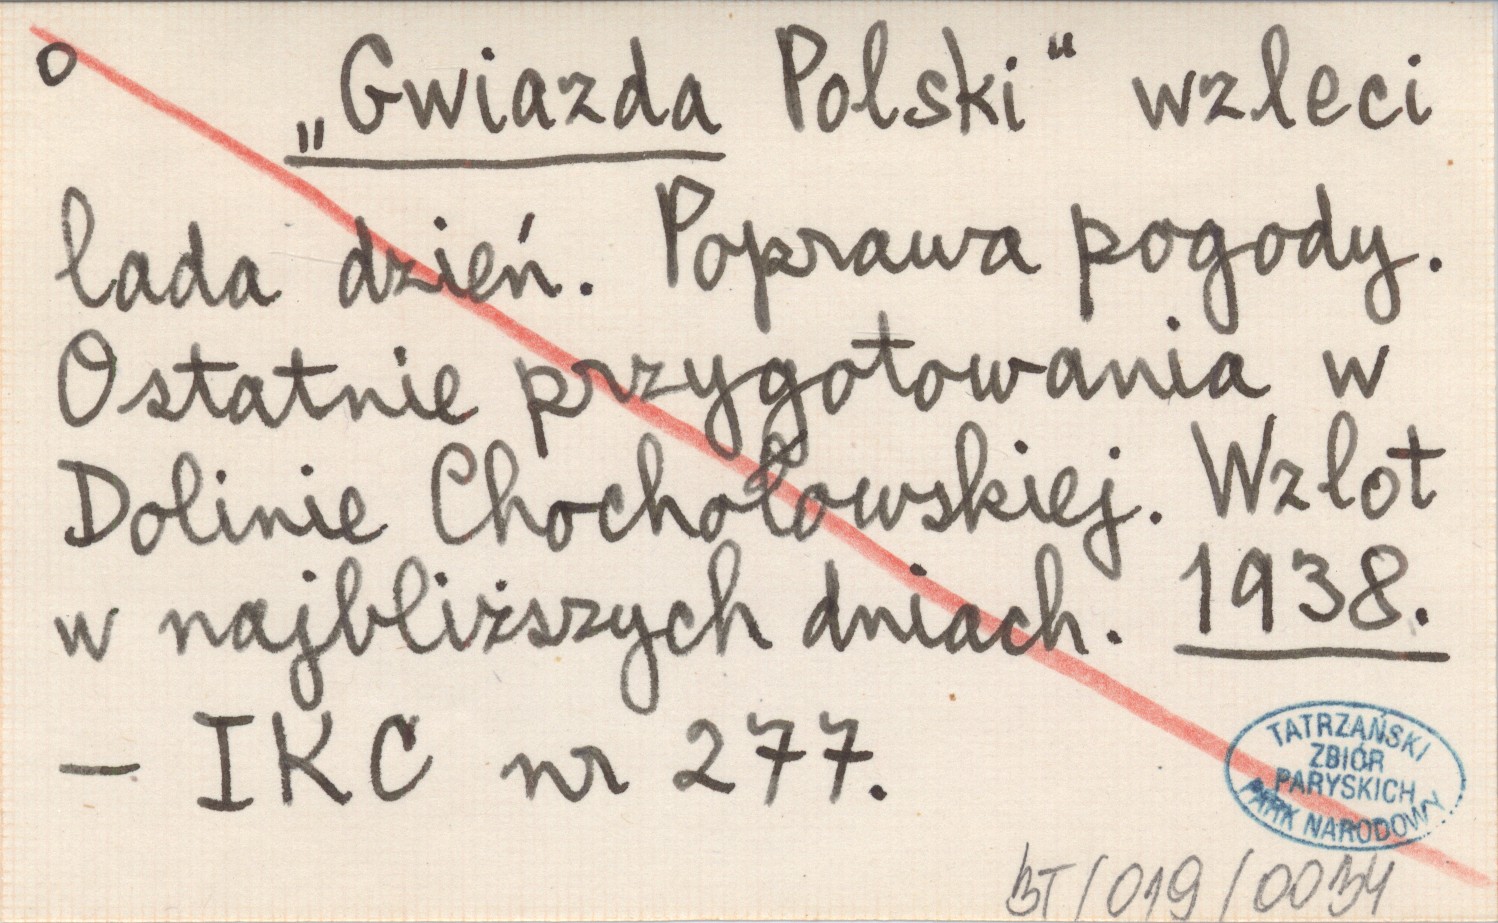 o „Gwiazda Polski“ wzleci
lada dzień. Poprawa pogody.
Ostatnie przygotowania w
Dolinie Chochołowskiej. Wzlot
w najbliższych dniach. 1938.
— IKC nr 277.
TATRZAŃSKI
ZBIÓR
PARYSKICH
PARK NARODOWY
BT/019/0034